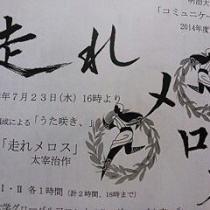 「コミュニケー
2014年度
走れ
メロ
年7月23日(水) 16時より
成による「うた咲き、」
「走れメロス」
太宰治作
I・II 各1時間(計2時間、18時まで)